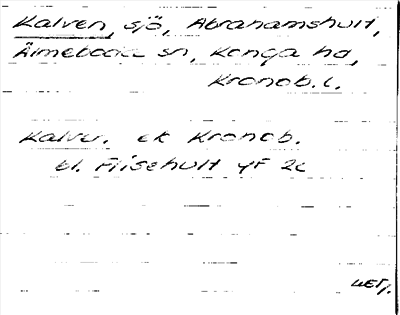 Kalven, sjö, Abrahamshult,
Älmeboda sn, Konga hd,
Kronob. l.
Kalven. ek Kronob.
bl. Flisehult 4F 2c